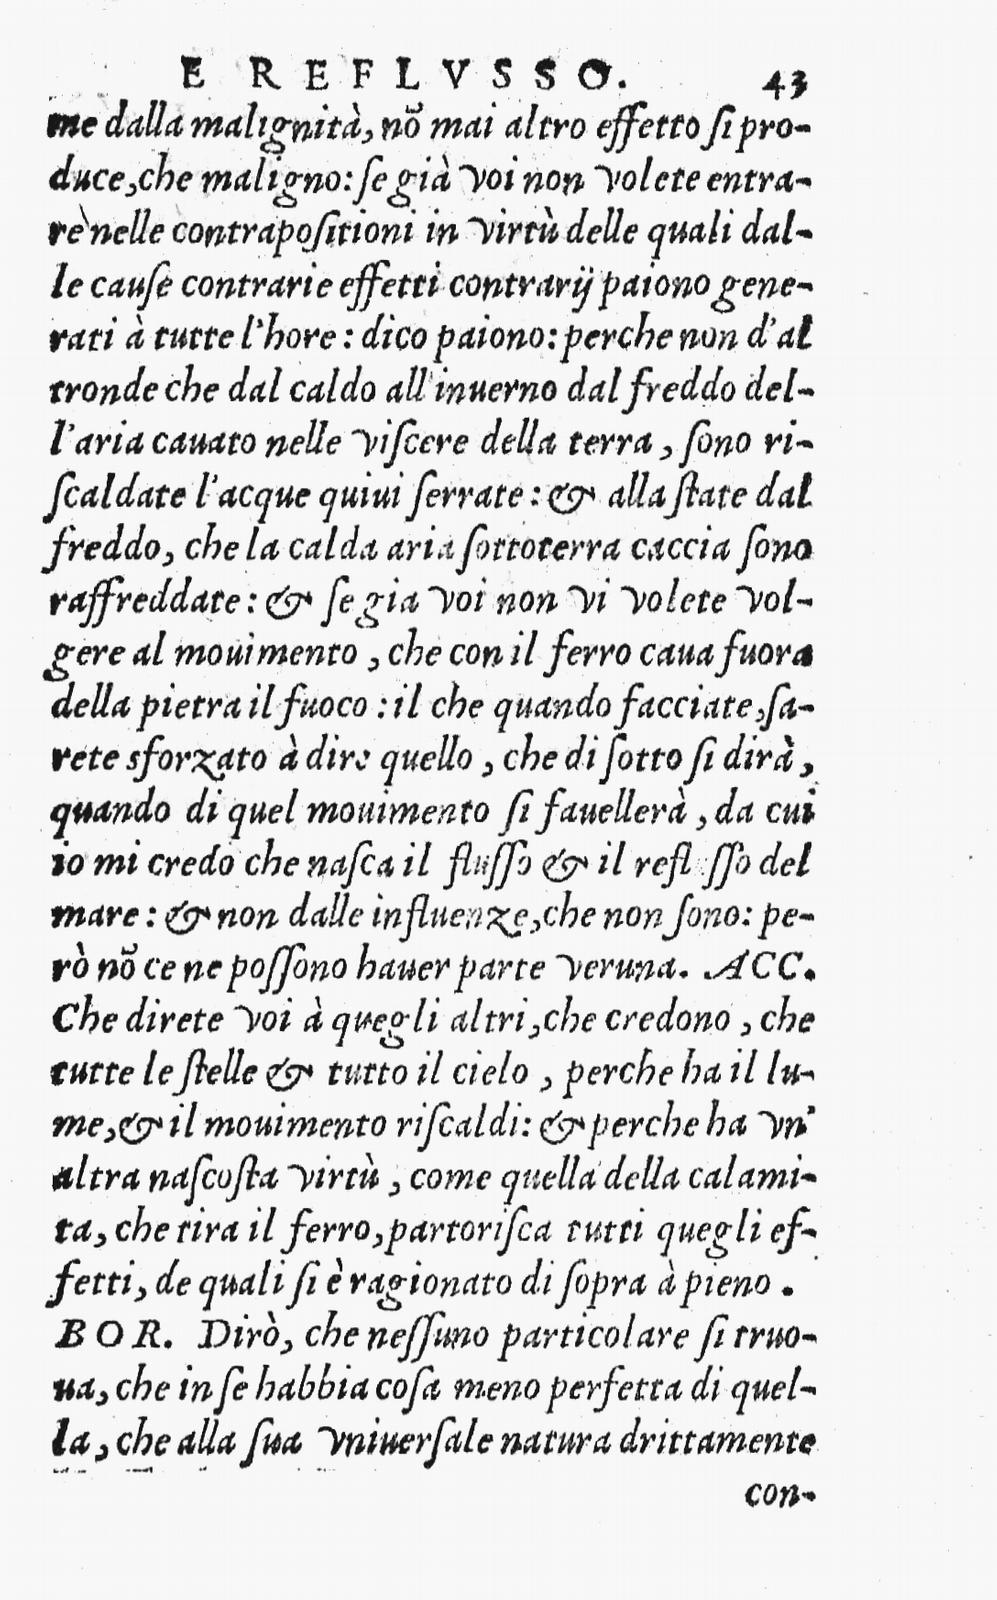 E REFLVSSO. 43
me dalla malignità, nõ mai altro effetto ſi pro-
duce, che maligno: ſe già voi non volete entra-
re nelle contrapoſitioni in virtù delle quali dal-
le cauſe contrarie effetti contrarij paiono gene-
rati à tutte l'hore: dico paiono: perche non d'al
tronde che dal caldo all'inuerno dal freddo del-
l'aria cauato nelle viſcere della terra, ſono ri-
ſcaldate l'acque quiui ſerrate: & alla ſtate dal
freddo, che la calda aria ſottoterra caccia ſono
raffreddate: & ſe gia voi non vi volete vol-
gere al mouimento, che con il ferro caua fuora
della pietra il fuoco: il che quando facciate, ſa-
rete sforzato à dire quello, che di ſotto ſi dirà,
quando di quel mouimento ſi fauellerà, da cui
io mi credo che naſca il fluſſo & il refl ſſo del
mare: & non dalle influenze, che non ſono: pe-
rò nõ ce ne poſſono hauer parte veruna. ACC.
Che direte voi à quegli altri, che credono, che
tutte le ſtelle & tutto il cielo, perche ha il lu-
me, & il mouimento riſcaldi: & perche ha vn'
altra naſcoſta virtù, come quella della calami-
ta, che tira il ferro, partoriſca tutti quegli ef-
fetti, de quali ſi è ragionato di ſopra à pieno.
BOR. Dirò, che neſſuno particolare ſi truo-
ua, che in ſe habbia coſa meno perfetta di quel-
la, che alla ſua vniuerſale natura drittamente
con-